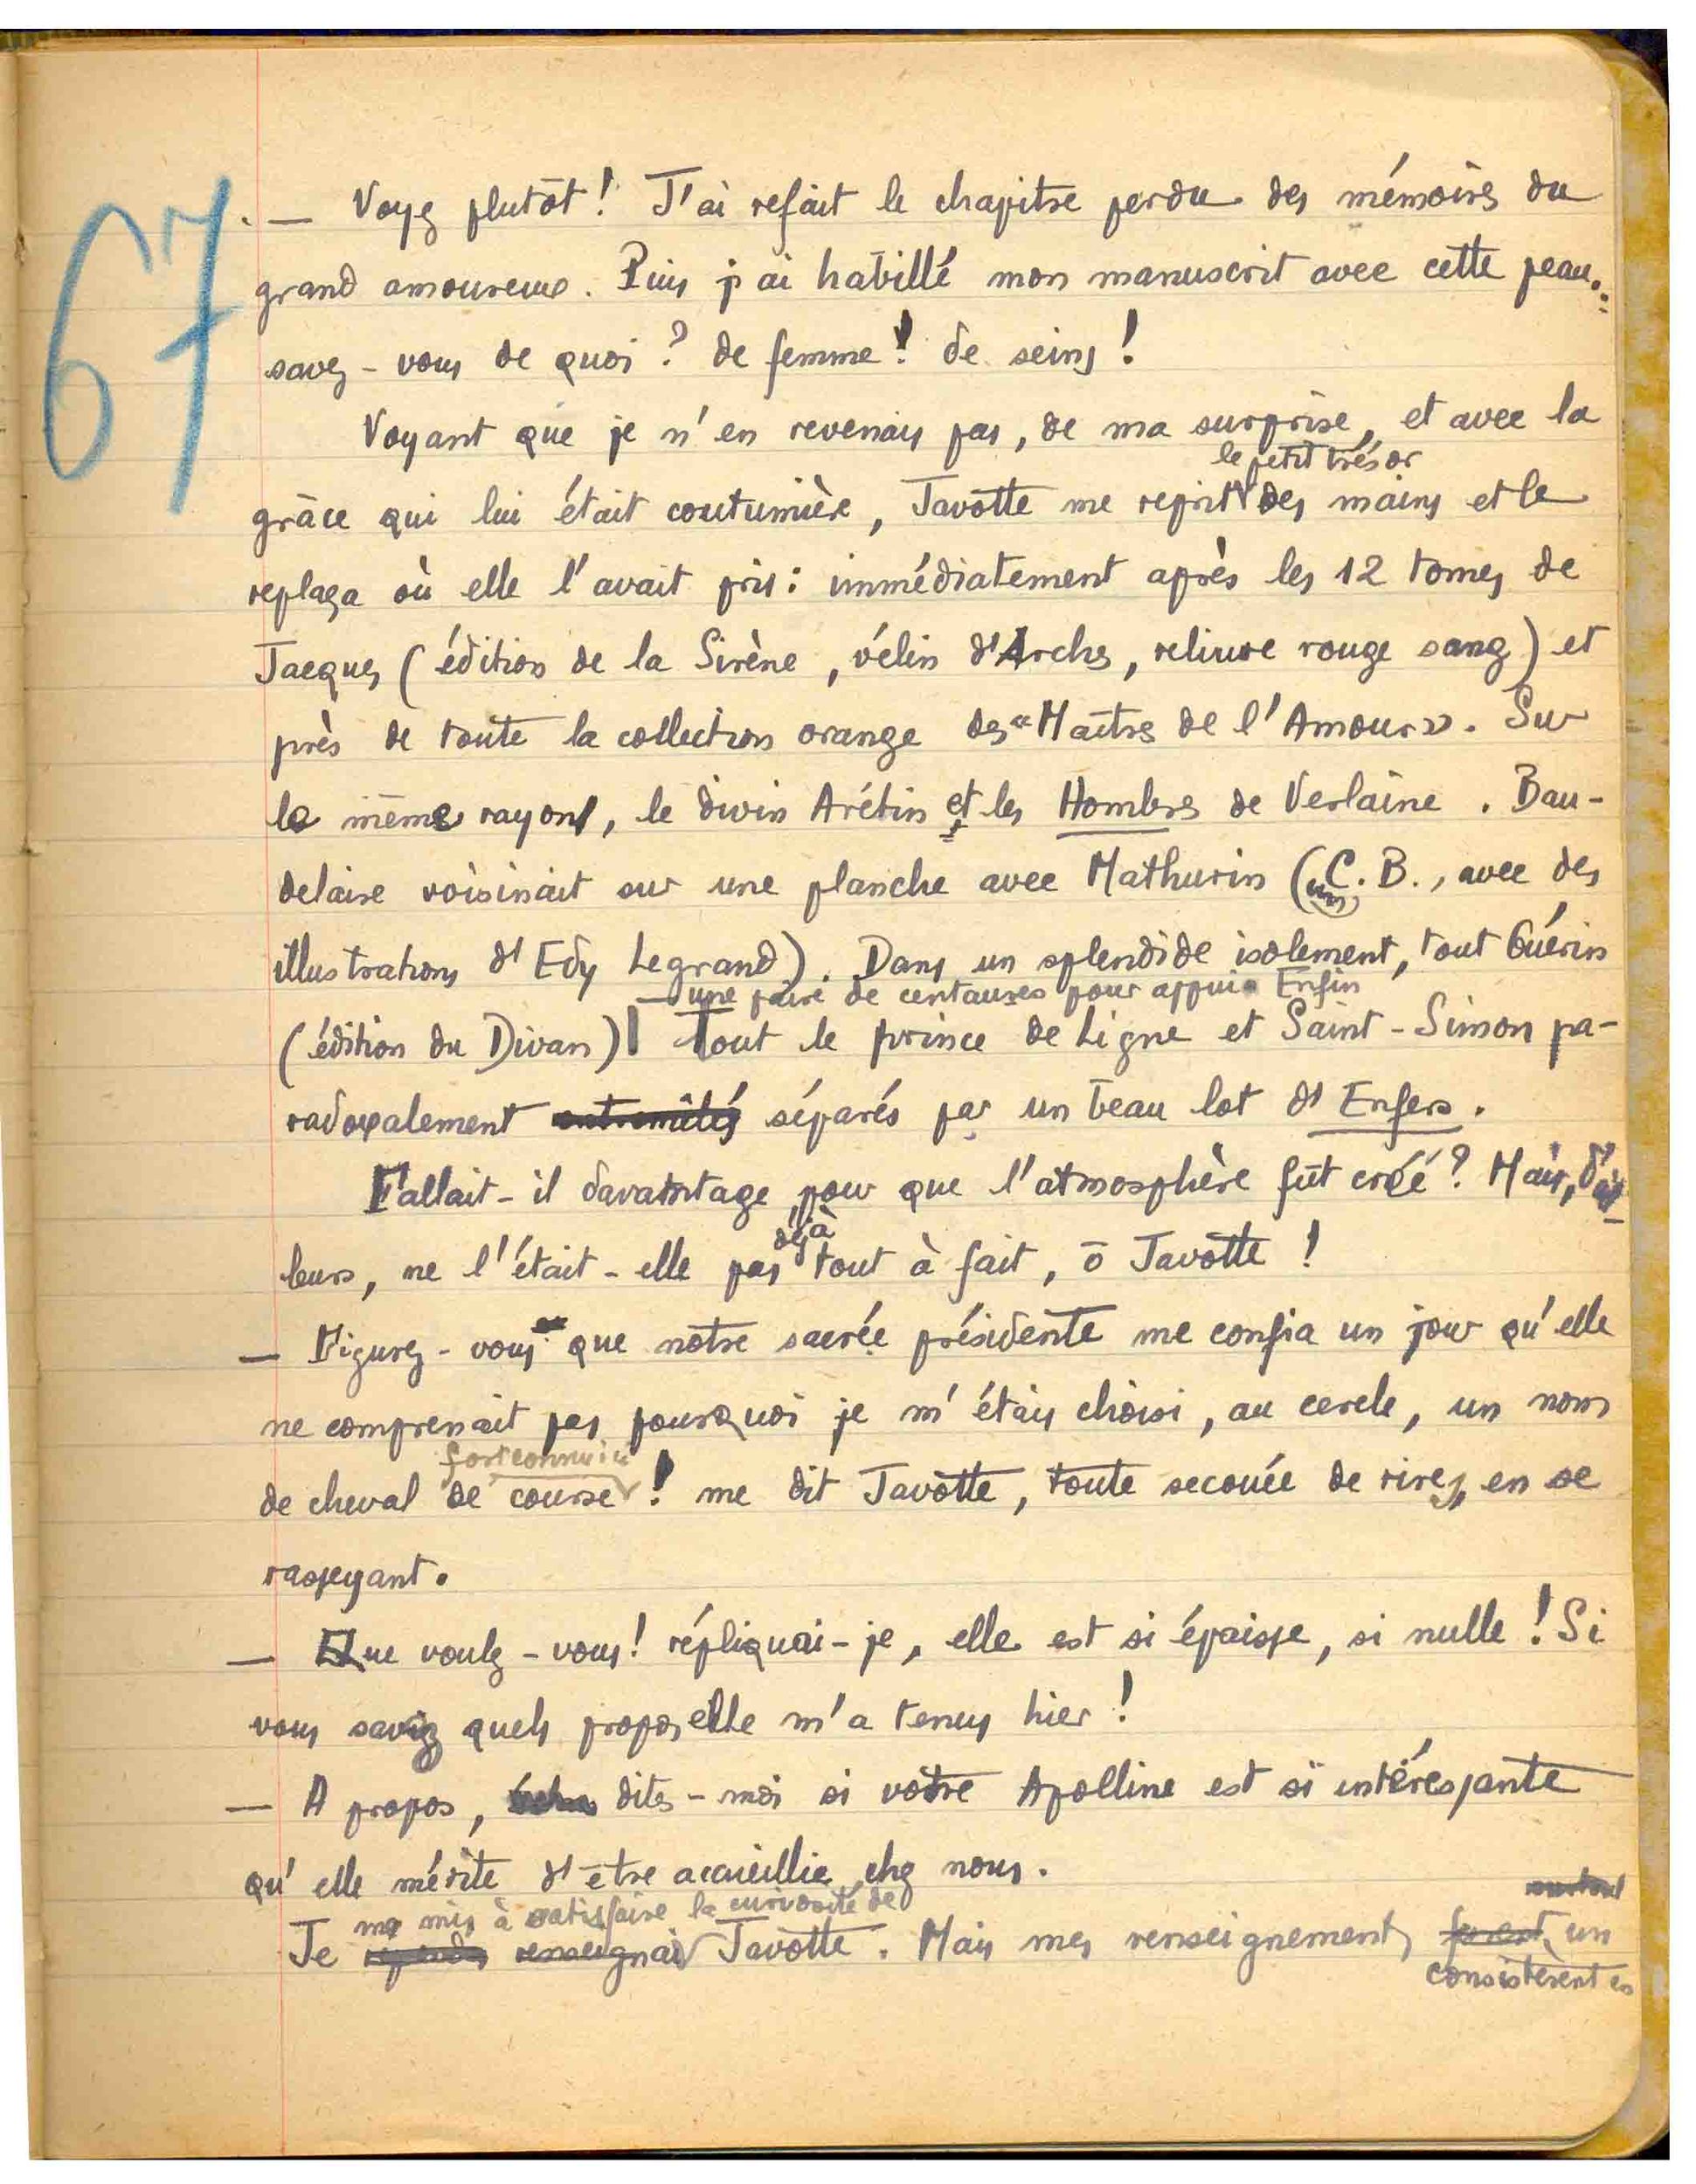 67
— Voyez plutôt! J'ai refait le chapitre perdu des mémoires du
grand amoureux. Puis j'ai habillé mon manuscrit avec cette peau..
savez-vous de quoi? de femme! de seins!
Voyant que je n'en revenais pas, de ma surprise, et avec la
le petit trésor
grâce qui lui était coutumière, Javotte me reprit des mains et le
replaça où elle l'avait pris: immédiatement après les 12 tomes de
Jacques (édition de la Sirène, vélin d'Arches, reliure rouge sang) et
près de toute la collection orange des "Maîtres de l'Amour». Sur
le même rayon, le divin Arétin et les Hombres de Verlaine. Bau-
delaire voisinait sur une planche avec Mathurin (un C.B., avec des
illustrations d'Edy Legrand). Dans un splendide isolement, tout Guérin
— une paire de centaures pour appui. Enfin
(édition du Divan) Tout le prince de Ligne et Saint-Simon pa-
radoxalement séparés par un beau lot d'Enfers.
Fallait-il davantage pour que l'atmosphère fût créé? Mais, d'ail-
déjà
leurs, ne l'était-elle pas tout à fait, ô Javotte!
— Figurez-vous que notre sacrée présidente me confia un jour qu'elle
ne comprenait pas pourquoi je m'étais choisi, au cercle, un nom
fort connu ici
de cheval de course! me dit Javotte, toute secouée de rires, en se
rasseyant.
— Que voulez-vous! répliquai-je, elle est si épaisse, si nulle! Si
vous saviez quels propos elle m'a tenus hier!
— A propos, dites-moi si votre Apolline est si intéressante
qu'elle mérite d'être accueillie chez nous.
me mis à satisfaire la curiosité de
surtout
Je renseignai Javotte. Mais mes renseignements furent un
consistèrent en